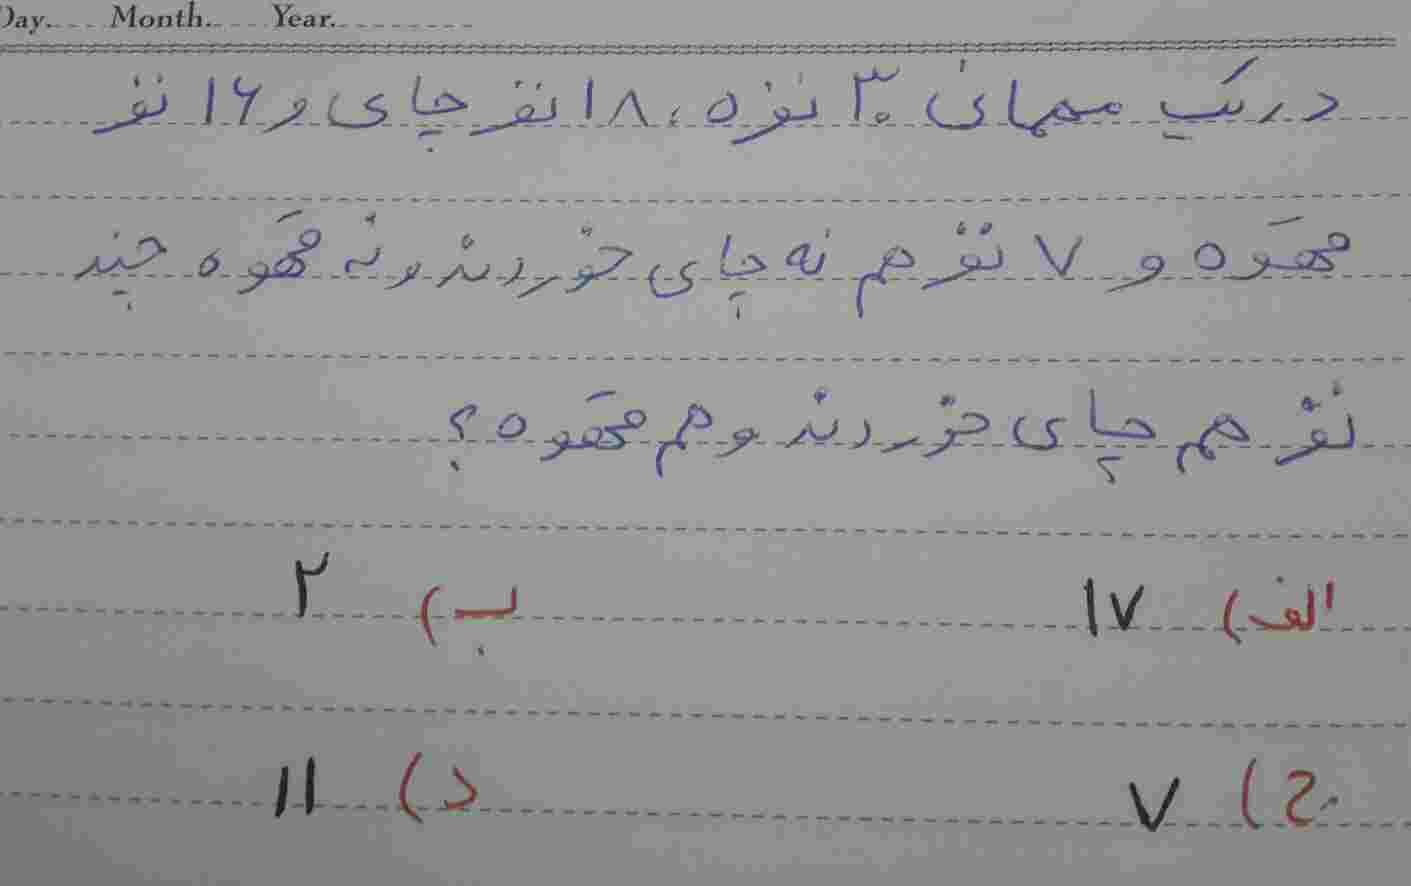 Day. Month. Year.
در یک مهمانی ۳۰ نفره ، ۱۸ نفر چای و ۱۶ نفر
قهوه و ۷ نفر هم نه چای خوردند و نه قهوه چند
نفر هم چای خوردند و هم قهوه ؟
الف) ۱۷ ب) ۲
ج) ۷ د) ۱۱